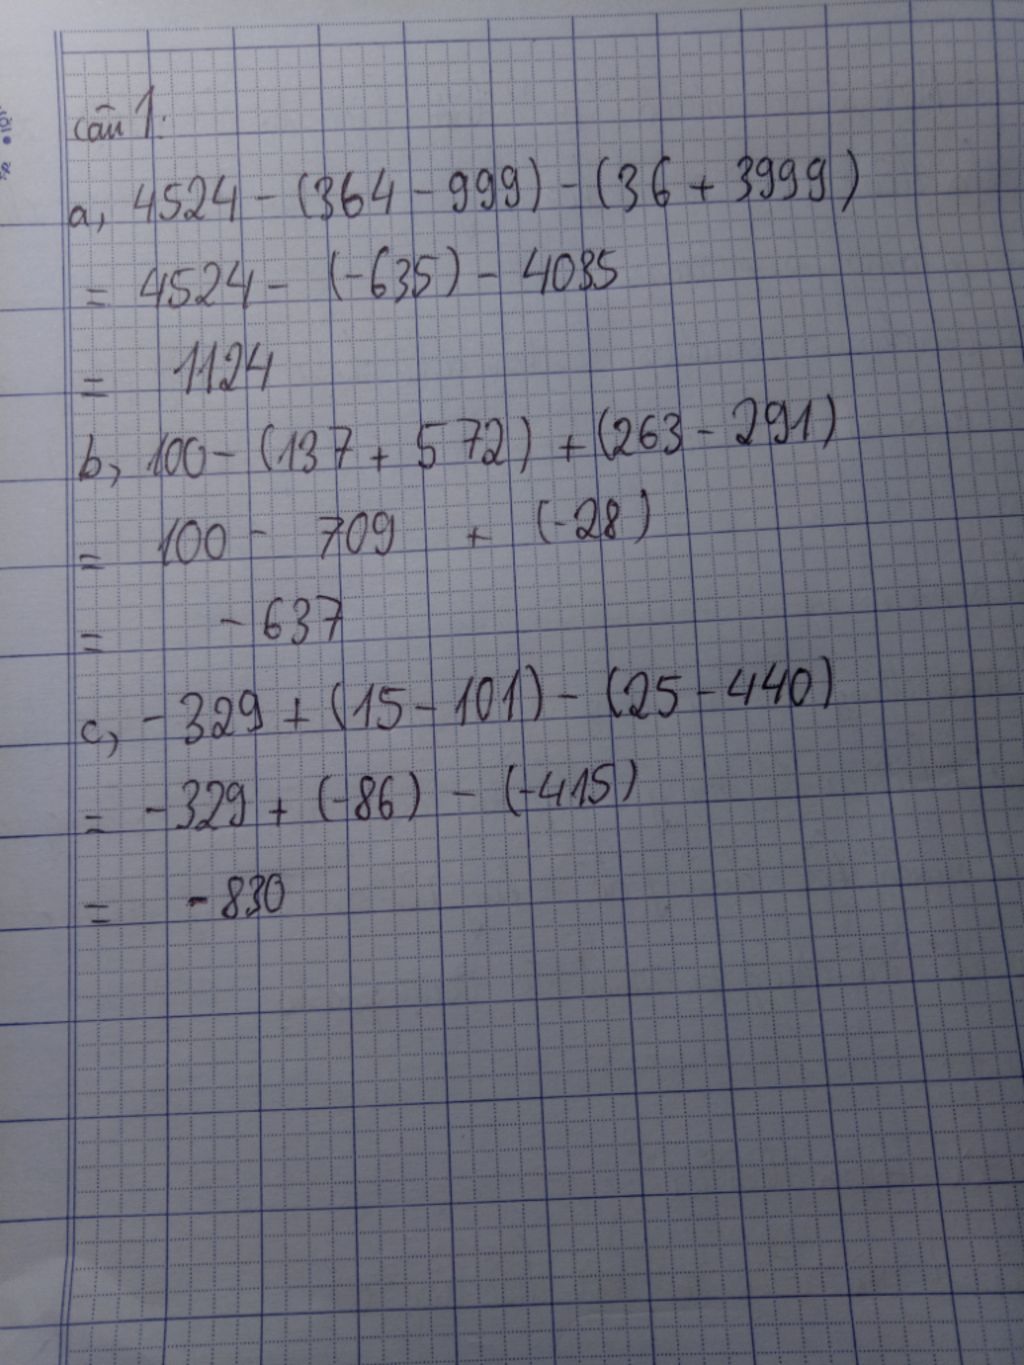 câu 1:
a, 4524 - (364 - 999) - (36 + 3999)
= 4524 - (-635) - 4035
= 1124
b, 100 - (137 + 572) + (263 - 291)
= 100 - 709 + (-28)
= - 637
c, - 329 + (15 - 101) - (25 - 440)
= - 329 + (-86) - (-415)
= - 830